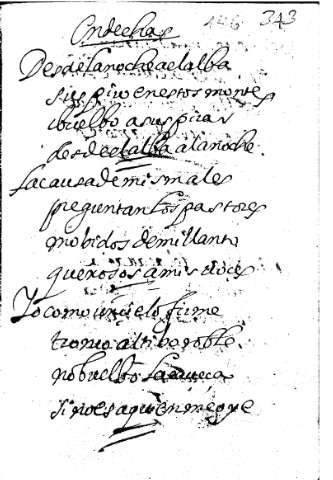 Endechas
146 343
Desde la noche a el alba
suspiro en estos montes
i buelbo a suspirar
desde el alba a la noche.
la causa de mis males
preguntan los pastores
mobidos de mi llanto
quexosos a mis voces
Yo como un yelo firme
tronco altibo roble.
no buelbo la
sino es a quien me oye